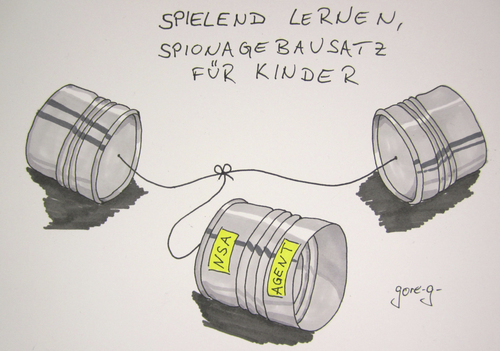 SPIELEND LERNEN,
SPIONAGEBAUSATZ
FÜR KINDER
NSA
AGENT
gore-g-